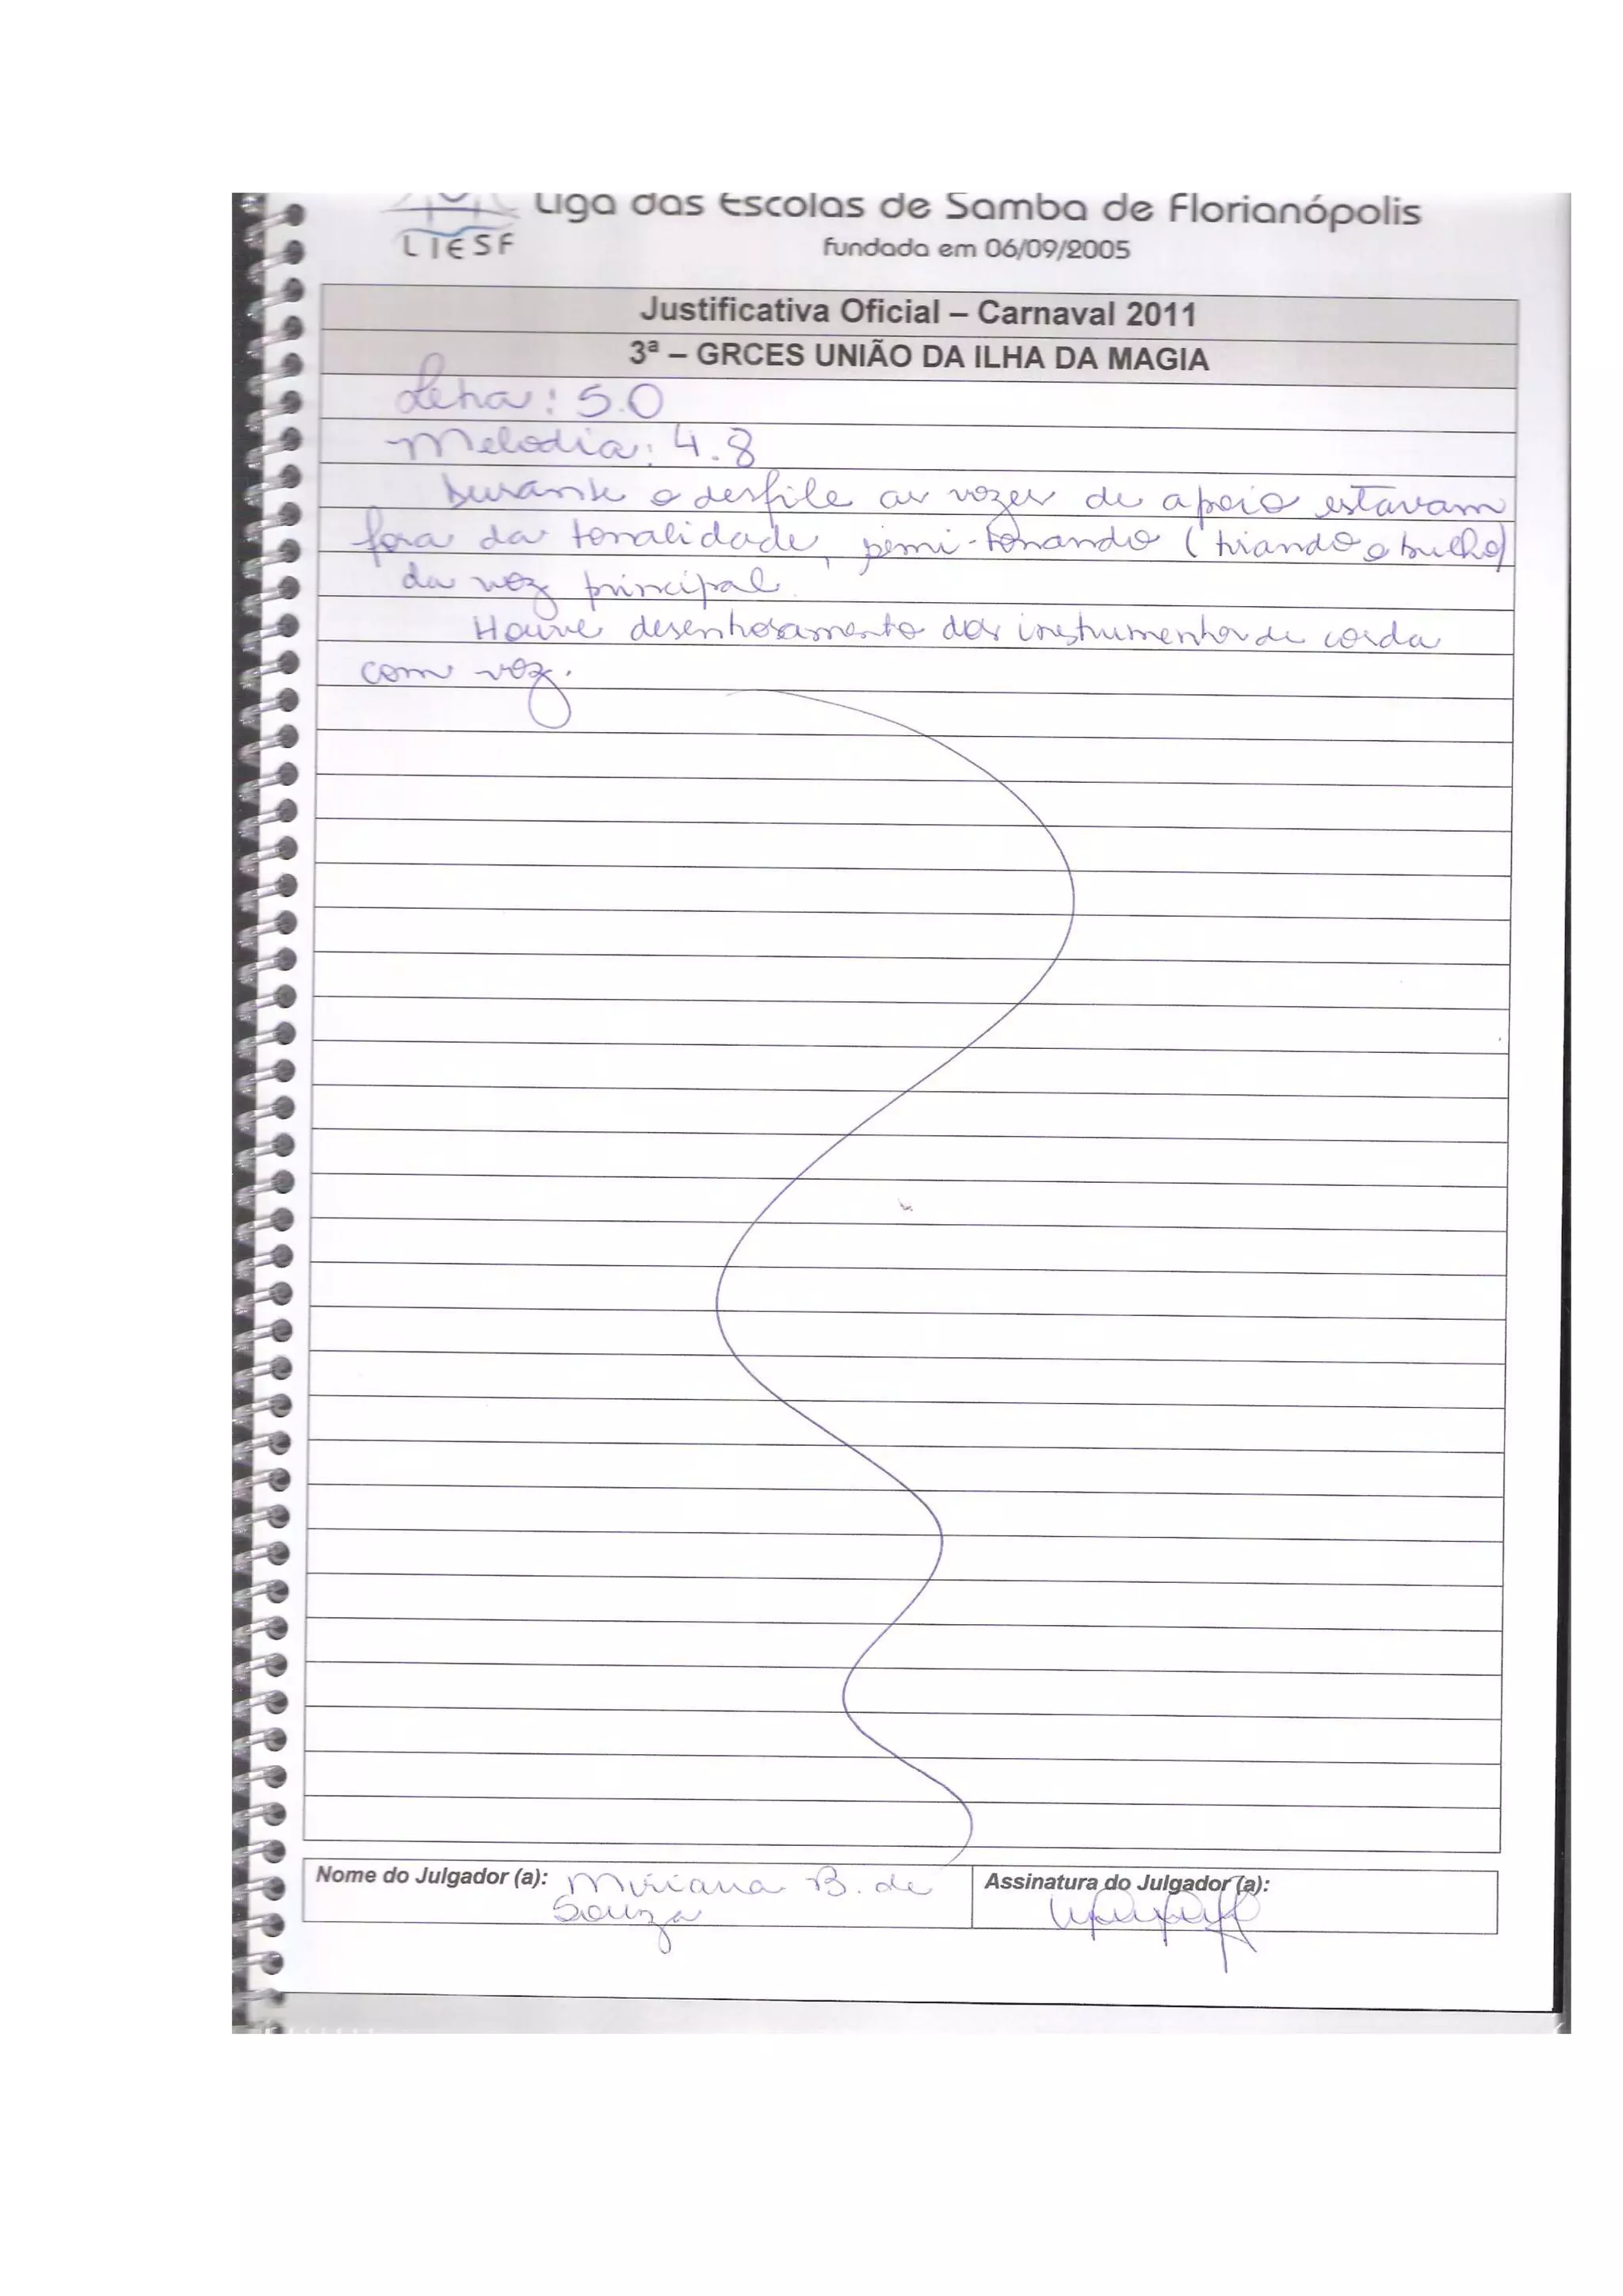 Liga das Escolas de Samba de Florianópolis
LIESF
fundada em 06/09/2005
Justificativa Oficial – Carnaval 2011
3ª – GRCES UNIÃO DA ILHA DA MAGIA
Letra: 5.0
Melodia: 4.8
Durante o desfile as vozes de apoio estavam
fora da tonalidade, semi-tonando (tirando o brilho)
da voz principal.
Houve desentrosamento dos instrumentos de corda
com voz.
Nome do Julgador (a): Miriana B. de
Souza
Assinatura do Julgador (a):